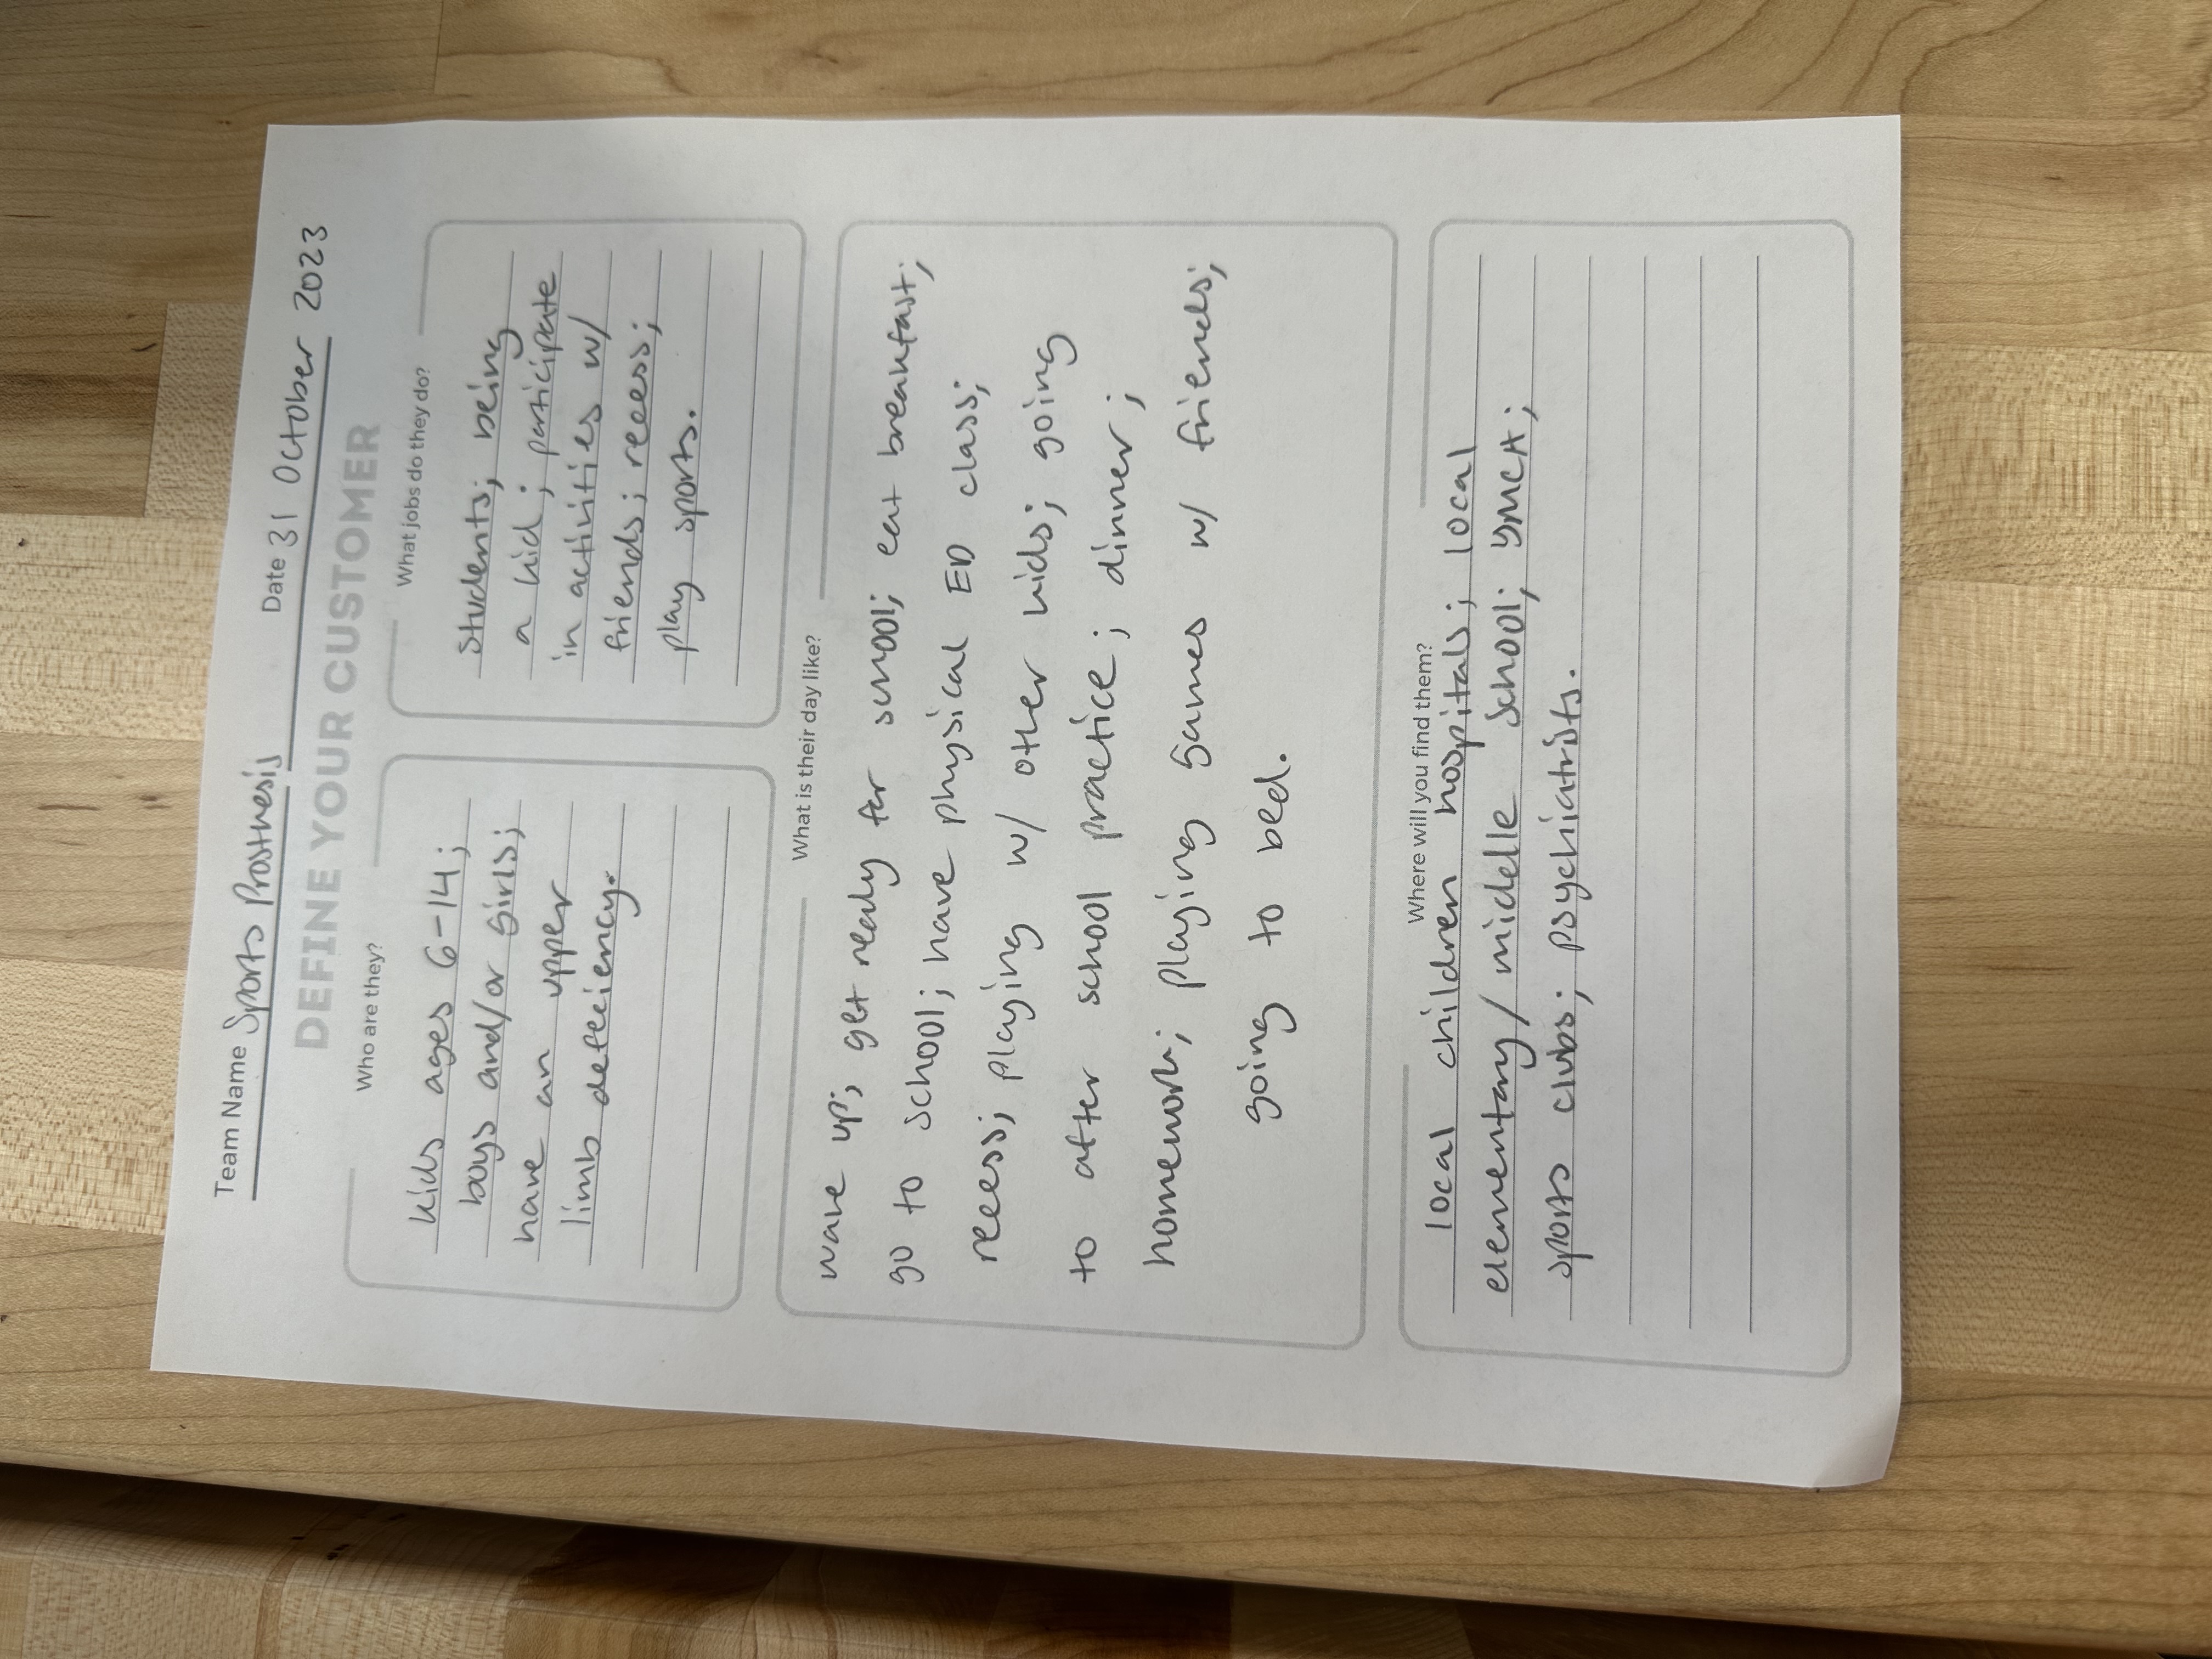 Team Name Sports Prosthesis Date 31 October 2023
DEFINE YOUR CUSTOMER
Who are they?
kids ages 6-14;
boys and/or girls;
have an upper
limb defeciency.
What jobs do they do?
students; being
a kid; participate
in activities w/
friends; recess;
play sports.
What is their day like?
wake up; get ready for school; eat breakfast;
go to school; have physical ED class;
recess; playing w/ other kids; going
to after school practice; dinner;
homework; playing games w/ friends;
going to bed.
Where will you find them?
local children hospitals; local
elementary/middle school; YMCA;
sports clubs; psychiatrists.